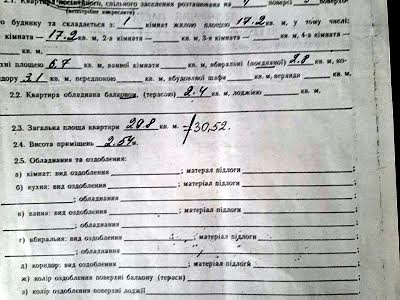 2.1. Квартира посімейного, спільного заселення розташована на 4 поверсі поверхо-
го будинку та складається з: 1 кімнат жилою площею 17.2 кв. м, у тому числі:
кімната — 17.2 кв. м, 2-а кімната — кв. м, 3-я кімната — кв. м, 4-а кімната —
кв. м,
хні площею 6.7 кв. м, ванної кімнати кв. м, вбиральні (поєднаної) 2.8 кв. м, ко-
дору 3.1 кв. м, передпокою кв. м, вбудованої шафи кв. м, веранди кв. м,
кв. м.
2.2. Квартира обладнана балконом, (терасою) 2.4 кв. м, лоджією кв. м.
2.3. Загальна площа квартири 29.8 кв. м. 30,52.
2.4. Висота приміщень 2.54 м.
2.5. Обладнання та оздоблення:
а) кімнат: вид оздоблення ; матеріал підлоги ;
б) кухня: вид оздоблення ; матеріал підлоги
; обладнання ;
в) ванна: вид оздоблення ; матеріал підлоги
; обладнання
г) вбиральня: вид оздоблення ; матеріал підлоги
; обладнання ;
д) коридор: вид оздоблення ; матеріал підлоги ;
ж) колір оздоблення поверхні балкону (тераси) ;
з) колір оздоблення поверхні лоджії